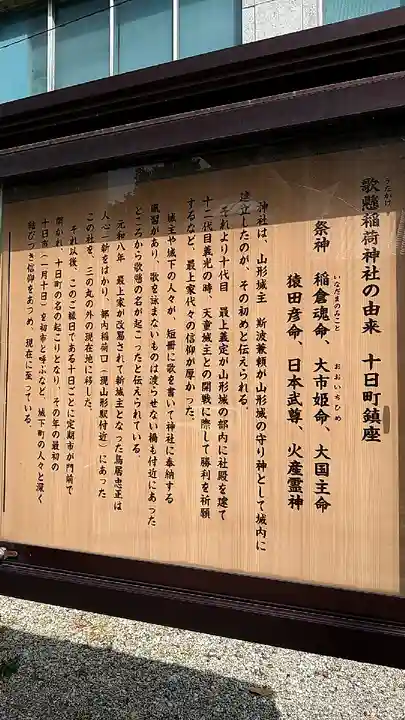 歌懸稲荷神社の由来 十日町鎮座
うたかけ
祭神 稲倉魂命、大市姫命、大国主命
いなだまのみこと おおいちひめ
猿田彦命、日本武尊、火産霊神
神社は、山形城主 斯波兼頼が山形城の守り神として城内に
建立したのが、その初めと伝えられる。
それより十代目 最上義定が山形城の郭内に社殿を建て
十二代目義光の時、天童城主との開戦に際して勝利を祈願
するなど、最上家代々の信仰が厚かった。
城主や城下の人々が、短冊に歌を書いて神社に奉納する
風習があり、歌を詠まないものは渡らせない橋も付近にあった
ところから歌懸の名が起こったと伝えられている。
元和八年 最上家が改易されて新城主となった鳥居忠政は
人心一新をはかり、郭内稲荷口（現山形駅付近）にあった
この社を、三の丸の外の現在地に移した。
それ以後、このご縁日である十日ごとに定期市が門前で
開かれ、十日町の名の起こりとなり、その年の最初の
十日市（一月十日）を初市と呼ぶなど、城下町の人々と深く
結びつき信仰をあつめ、現在に至っている。